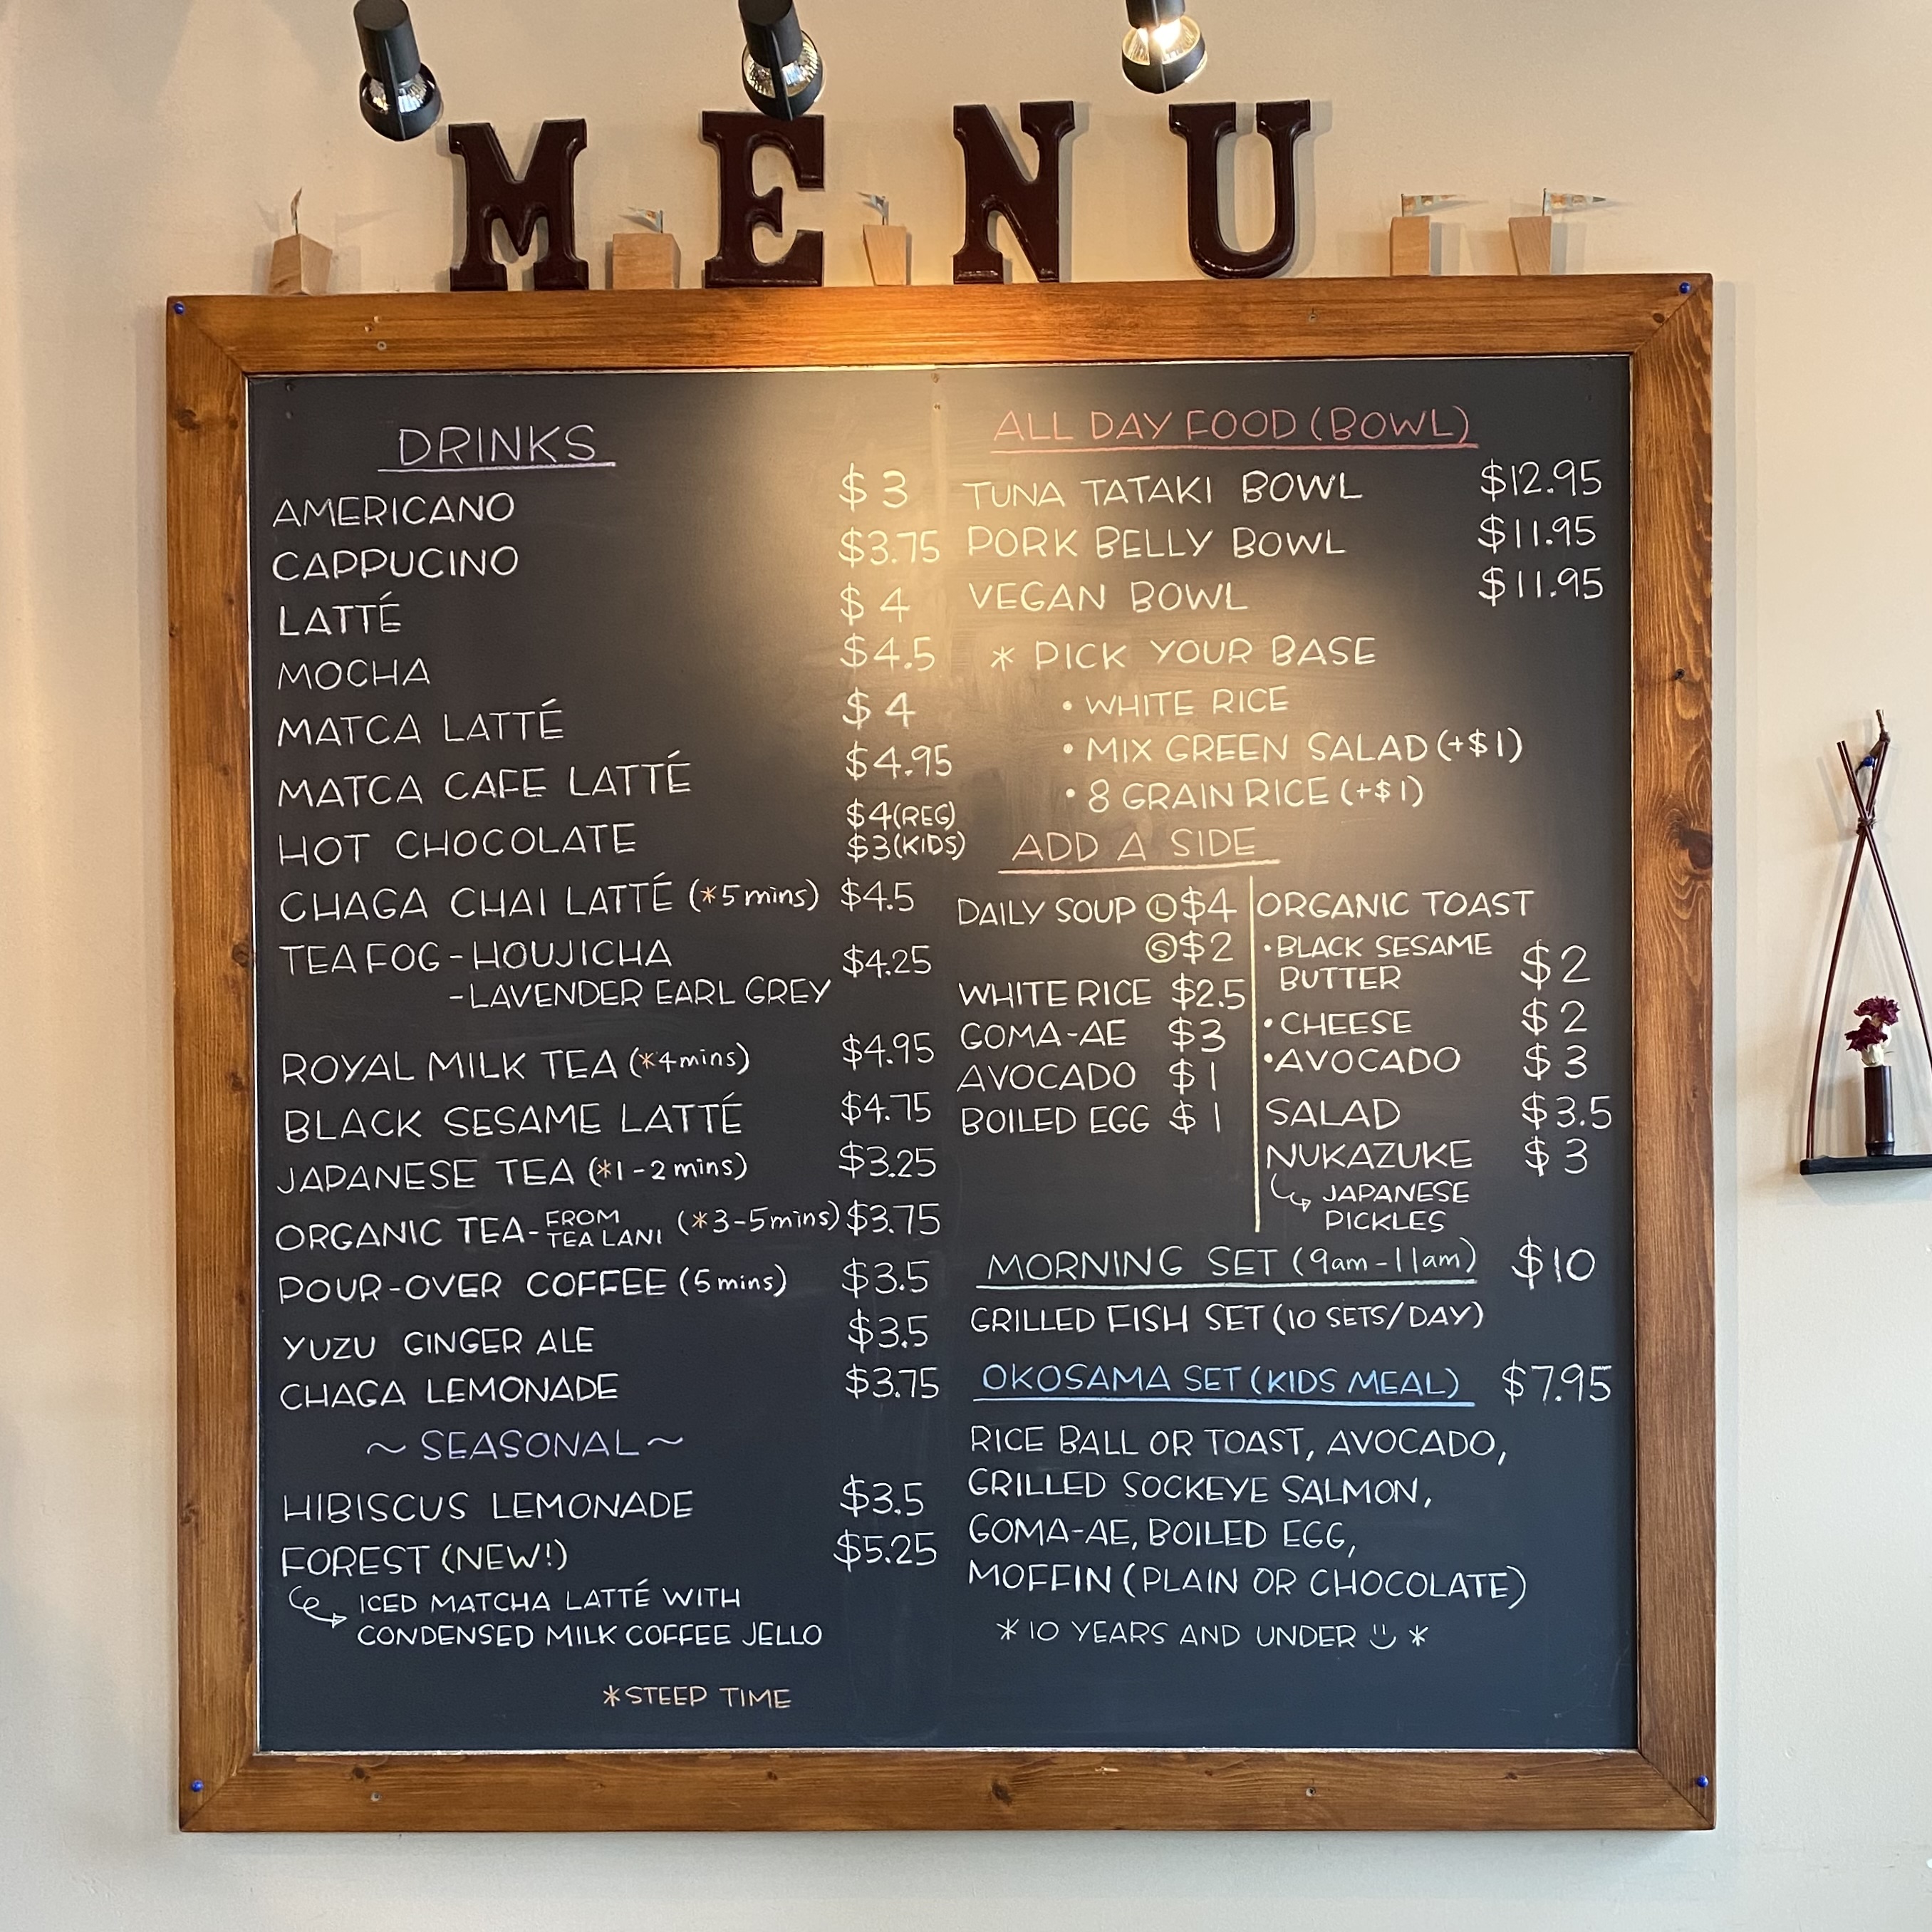 MENU
DRINKS
AMERICANO $3
CAPPUCINO $3.75
LATTÉ $4
MOCHA $4.5
MATCA LATTÉ $4
MATCA CAFE LATTÉ $4.95
HOT CHOCOLATE $4(REG)
$3(KIDS)
CHAGA CHAI LATTÉ (*5mins) $4.5
TEA FOG-HOUJICHA $4.25
-LAVENDER EARL GREY
ROYAL MILK TEA (*4mins) $4.95
BLACK SESAME LATTÉ $4.75
JAPANESE TEA (*1-2mins) $3.25
ORGANIC TEA-FROM TEA LANI (*3-5mins) $3.75
POUR-OVER COFFEE (5mins) $3.5
YUZU GINGER ALE $3.5
CHAGA LEMONADE $3.75
~SEASONAL~
HIBISCUS LEMONADE $3.5
FOREST (NEW!) $5.25
ICED MATCHA LATTÉ WITH
CONDENSED MILK COFFEE JELLO
*STEEP TIME
ALL DAY FOOD (BOWL)
TUNA TATAKI BOWL $12.95
PORK BELLY BOWL $11.95
VEGAN BOWL $11.95
* PICK YOUR BASE
• WHITE RICE
• MIX GREEN SALAD (+$1)
• 8 GRAIN RICE (+$1)
ADD A SIDE
DAILY SOUP Ⓛ$4
Ⓢ$2
WHITE RICE $2.5
GOMA-AE $3
AVOCADO $1
BOILED EGG $1
ORGANIC TOAST
•BLACK SESAME
BUTTER $2
•CHEESE $2
•AVOCADO $3
SALAD $3.5
NUKAZUKE $3
JAPANESE
PICKLES
MORNING SET (9am-11am) $10
GRILLED FISH SET (10 SETS/DAY)
OKOSAMA SET (KIDS MEAL) $7.95
RICE BALL OR TOAST, AVOCADO,
GRILLED SOCKEYE SALMON,
GOMA-AE, BOILED EGG,
MOFFIN (PLAIN OR CHOCOLATE)
*10 YEARS AND UNDER *